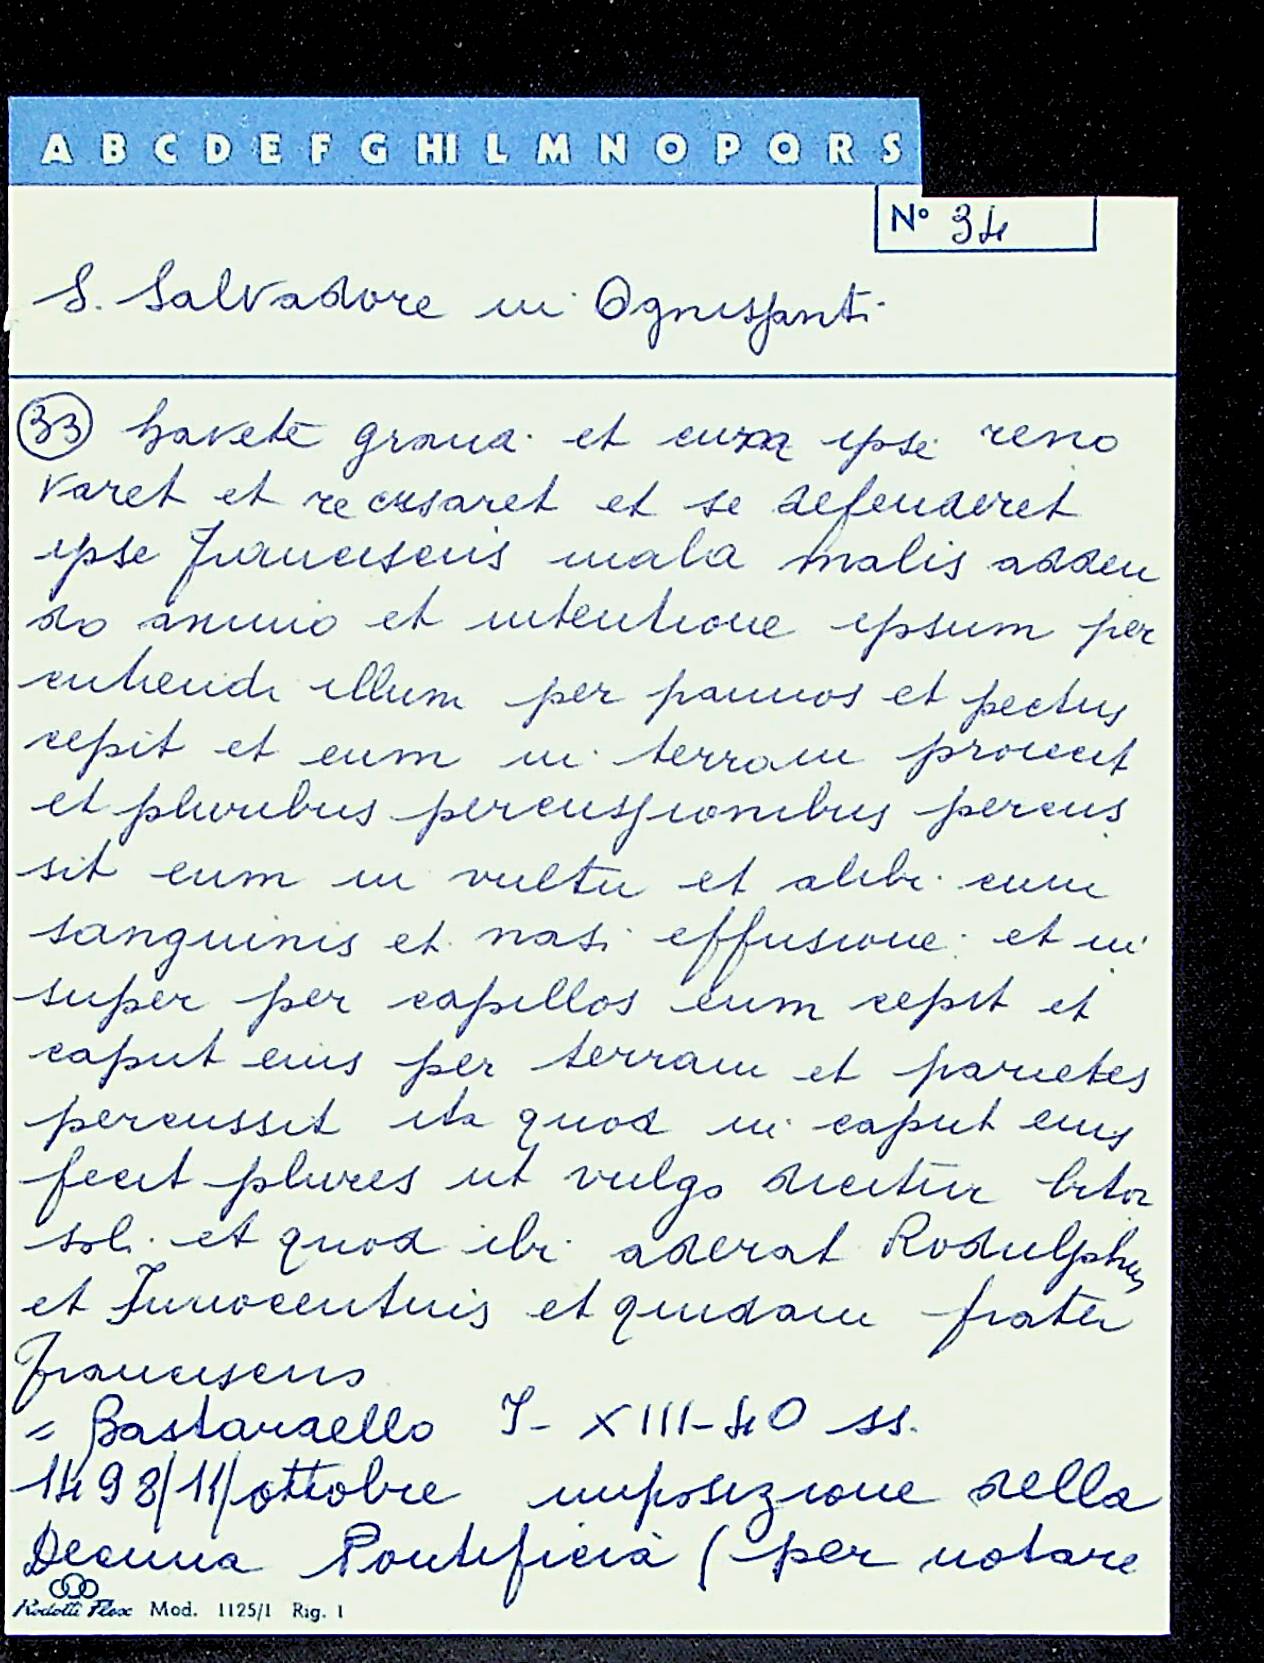 A B C D E F G HI L M N O P Q R S
N° 34
S. Salvadore in Ognissanti
33 havete et eum ipse reno
varet et recusaret et se defenderet
ipse Franciscus mala malis adden
do animo et intentione ipsum per
cutiendi illum per pannos et pectus
cepit et eum in terram proiecit
et pluribus percussionibus percus
sit eum in vultu et alibi cum
sanguinis et nasi effusione et in
super per capillos eum cepit et
caput eius per terram et parietes
percussit ita quod in caput eius
fecit plures ut vulgo dicitur bitor
soli et quod ibi aderat Rodulphus
et Innocentius et quidam frater
Franciscus
= Bastardello I- XIII-40 ss.
1498/11/ottobre imposizione della
Decima Pontificia (per notare
Rodotti Flex Mod. 1125/1 Rig. 1